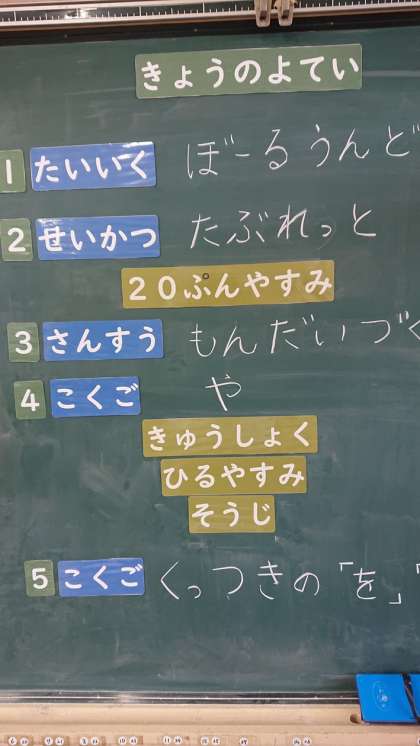 きょうのよてい
1 たいいく ぼーるうんど
2 せいかつ たぶれっと
20ぷんやすみ
3 さんすう もんだいづく
4 こくご や
きゅうしょく
ひるやすみ
そうじ
5 こくご くっつきの「を」「